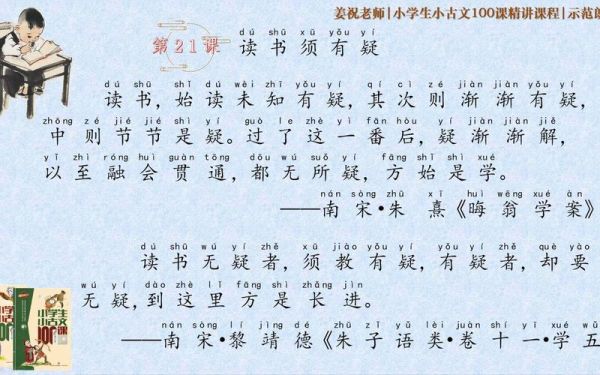 姜祝老师|小学生小古文100课精讲课程|示范朗
第21课
dú shū xū yǒu yí
读书须有疑
dú shū shǐ dú wèi zhī yǒu yí qí cì zé jiàn jiàn yǒu yí
读书,始读未知有疑,其次则渐渐有疑,
zhōng zé jié jié shì yí guò le zhè yì fān hòu yí jiàn jiàn jiě
中则节节是疑。过了这一番后,疑渐渐解,
yǐ zhì róng huì guàn tōng dōu wú suǒ yí fāng shǐ shì xué
以至融会贯通,都无所疑,方始是学。
nán sòng zhū xī huì wēng xué àn
——南宋•朱 熹《晦翁学案》
dú shū wú yí zhě xū jiào yǒu yí yǒu yí zhě què yào
读书无疑者,须教有疑,有疑者,却要
wú yí dào zhè lǐ fāng shì zhǎng jìn
无疑,到这里方是长进。
nán sòng lí jìng dé zhū zǐ yǔ lèi juàn shí yī xué wǔ
——南宋•黎靖德《朱子语类•卷十一•学五
小学生
小古文
100课
小学生
小古文
100课